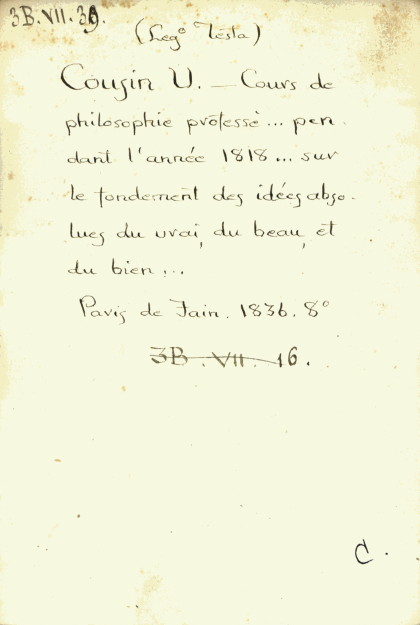 3B.VII.39.
(Leg° Testa)
Cousin V. – Cours de
philosophie professé... pen-
dant l'année 1818... sur
le fondement des idées abso-
lues du vrai, du beau, et
du bien...
Paris de Jain. 1836. 8°
3B.VII.16.
C.